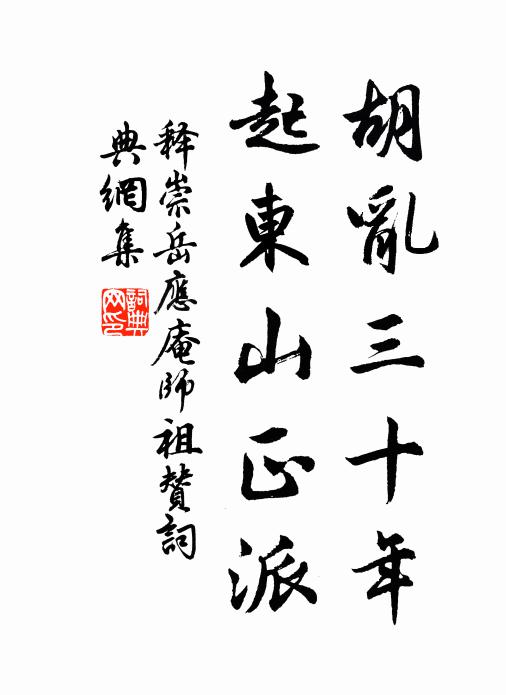 胡亂三十年
起東山正派
释崇岳應庵師祖贊詞
典網集
詞典网印